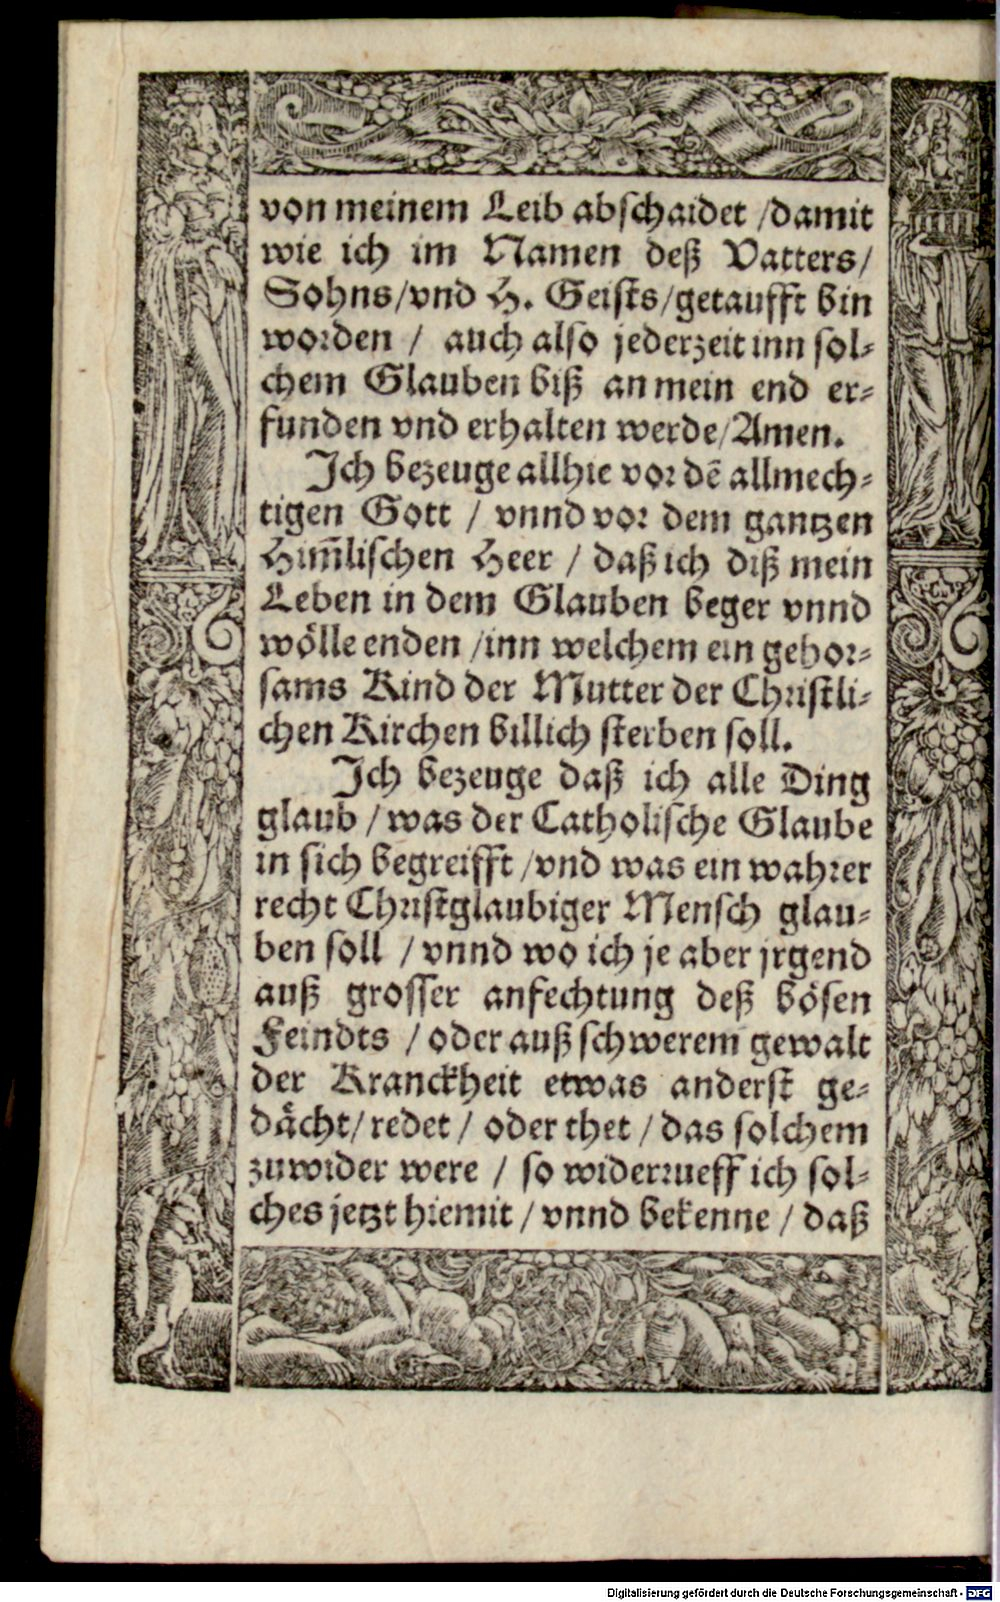 von meinem Leib abschaidet / damit
wie ich im Namen deß Vatters /
Sohns / vnd H. Geists / getaufft bin
worden / auch also jederzeit inn sol⸗
chem Glauben biß an mein end er⸗
funden vnd erhalten werde / Amen.
Ich bezeuge allhie vor dē allmech⸗
tigen Gott / vnnd vor dem gantzen
Him̄lischen Heer / daß ich diß mein
Leben in dem Glauben beger vnnd
wölle enden / inn welchem ein gehor⸗
sams Kind der Mutter der Christli⸗
chen Kirchen billich sterben soll.
Ich bezeuge daß ich alle Ding
glaub / was der Catholische Glaube
in sich begreifft / vnd was ein wahrer
recht Christglaubiger Mensch glau⸗
ben soll / vnnd wo ich je aber jrgend
auß grosser anfechtung deß bösen
Feindts / oder auß schwerem gewalt
der Kranckheit etwas anderst ge⸗
dächt / redet / oder thet / das solchem
zuwider were / so widerrueff ich sol⸗
ches jetzt hiemit / vnnd bekenne / daß
Digitalisierung gefördert durch die Deutsche Forschungsgemeinschaft - DFG